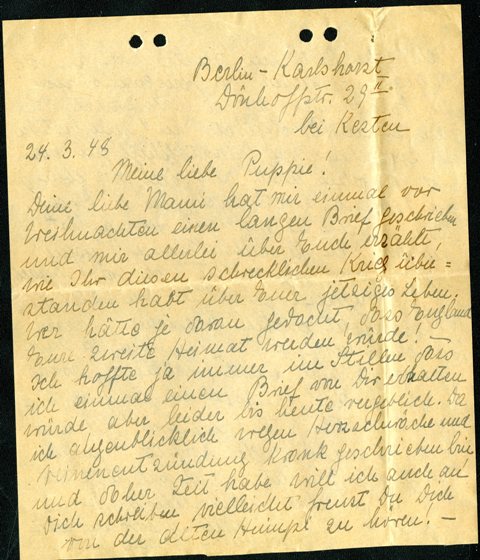 Berlin-Karlshorst
Dönhoffstr. 29 II
bei Kesten
24. 3. 48
Meine liebe Puppie!
Deine liebe Mami hat mir einmal vor
Weihnachten einen langen Brief geschrieben
und mir allerlei über Euch erzählt,
wie Ihr diesen schrecklichen Krieg über=
standen habt über Euer jetziges Leben.
Wer hätte je daran gedacht, dass England
Eure zweite Heimat werden würde! –
Ich hoffte ja immer im Stillen dass
ich einmal einen Brief von Dir erhalten
würde aber leider bis heute vergeblich. Da
ich augenblicklich wegen Herzschwäche und
Venenentzündung krank geschrieben bin
und daher Zeit habe will ich auch an
Dich schreiben vielleicht freust Du Dich
von der alten zu hören! –